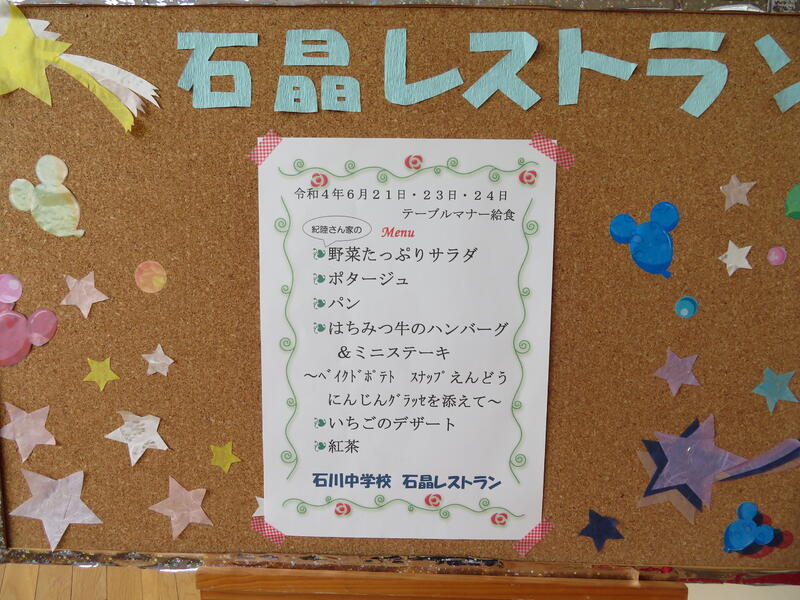 石晶レストラン
令和4年6月21日・23日・24日
テーブルマナー給食
紀陸さん家の
Menu
野菜たっぷりサラダ
ポタージュ
パン
はちみつ牛のハンバーグ
＆ミニステーキ
～ﾍﾞｲｸﾄﾞﾎﾟﾃﾄ ｽﾅｯﾌﾟえんどう
にんじんｸﾞﾗｯｾを添えて～
いちごのデザート
紅茶
石川中学校 石晶レストラン